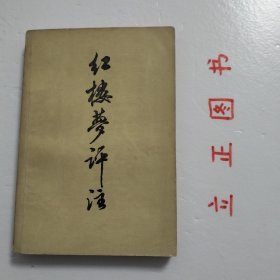 红楼梦评注
立正图书